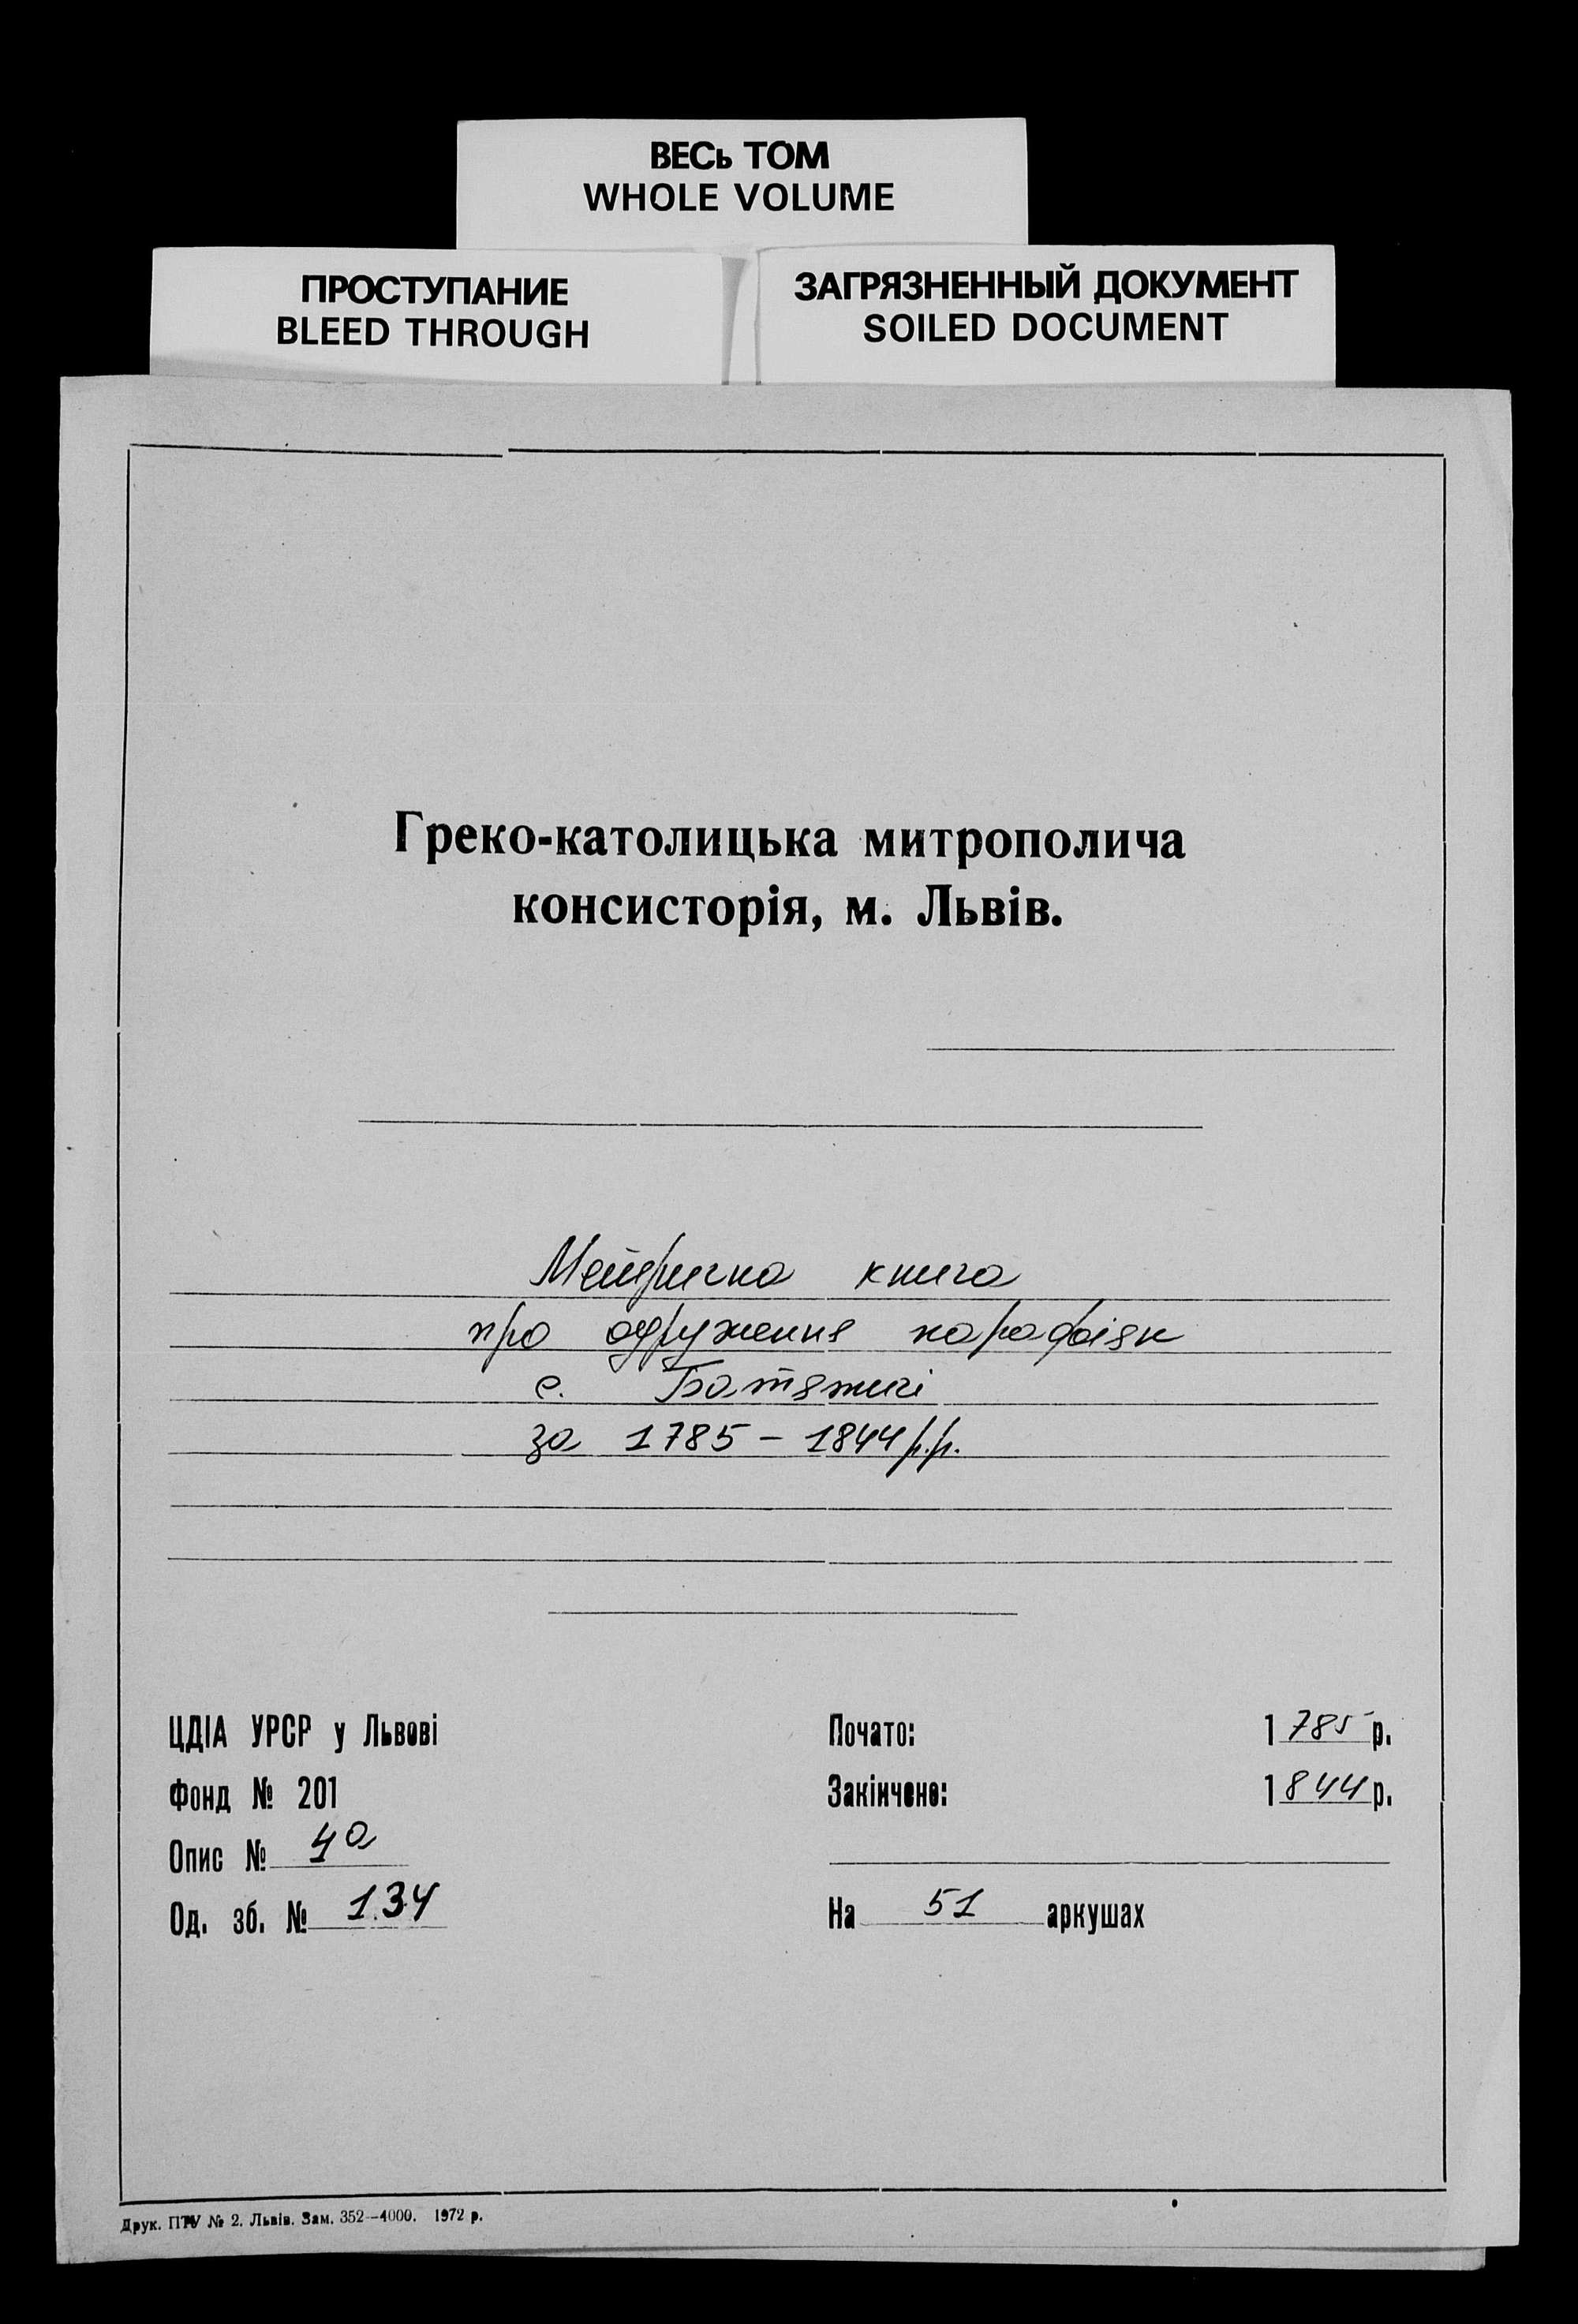 ВЕСЬ ТОМ
WHOLE VOLUME
ПРОСТУПАНИЕ
BLEED THROUGH
ЗАГРЯЗНЕННЫЙ ДОКУМЕНТ
SOILED DOCUMENT
Греко-католицька митрополича
консисторія, м. Львів.
Метрична книга
про одруження парафіян
с. Батятичі
за 1785 – 1844 р.р.
ЦДІА УРСР у Львові
Фонд № 201
Опис № 4а
Од. зб. № 134
Почато: 1785 р.
Закінчено: 1844 р.
На 51 аркушах
Друк. ПТУ № 2. Львів. Зам. 352—4000. 1972 р.